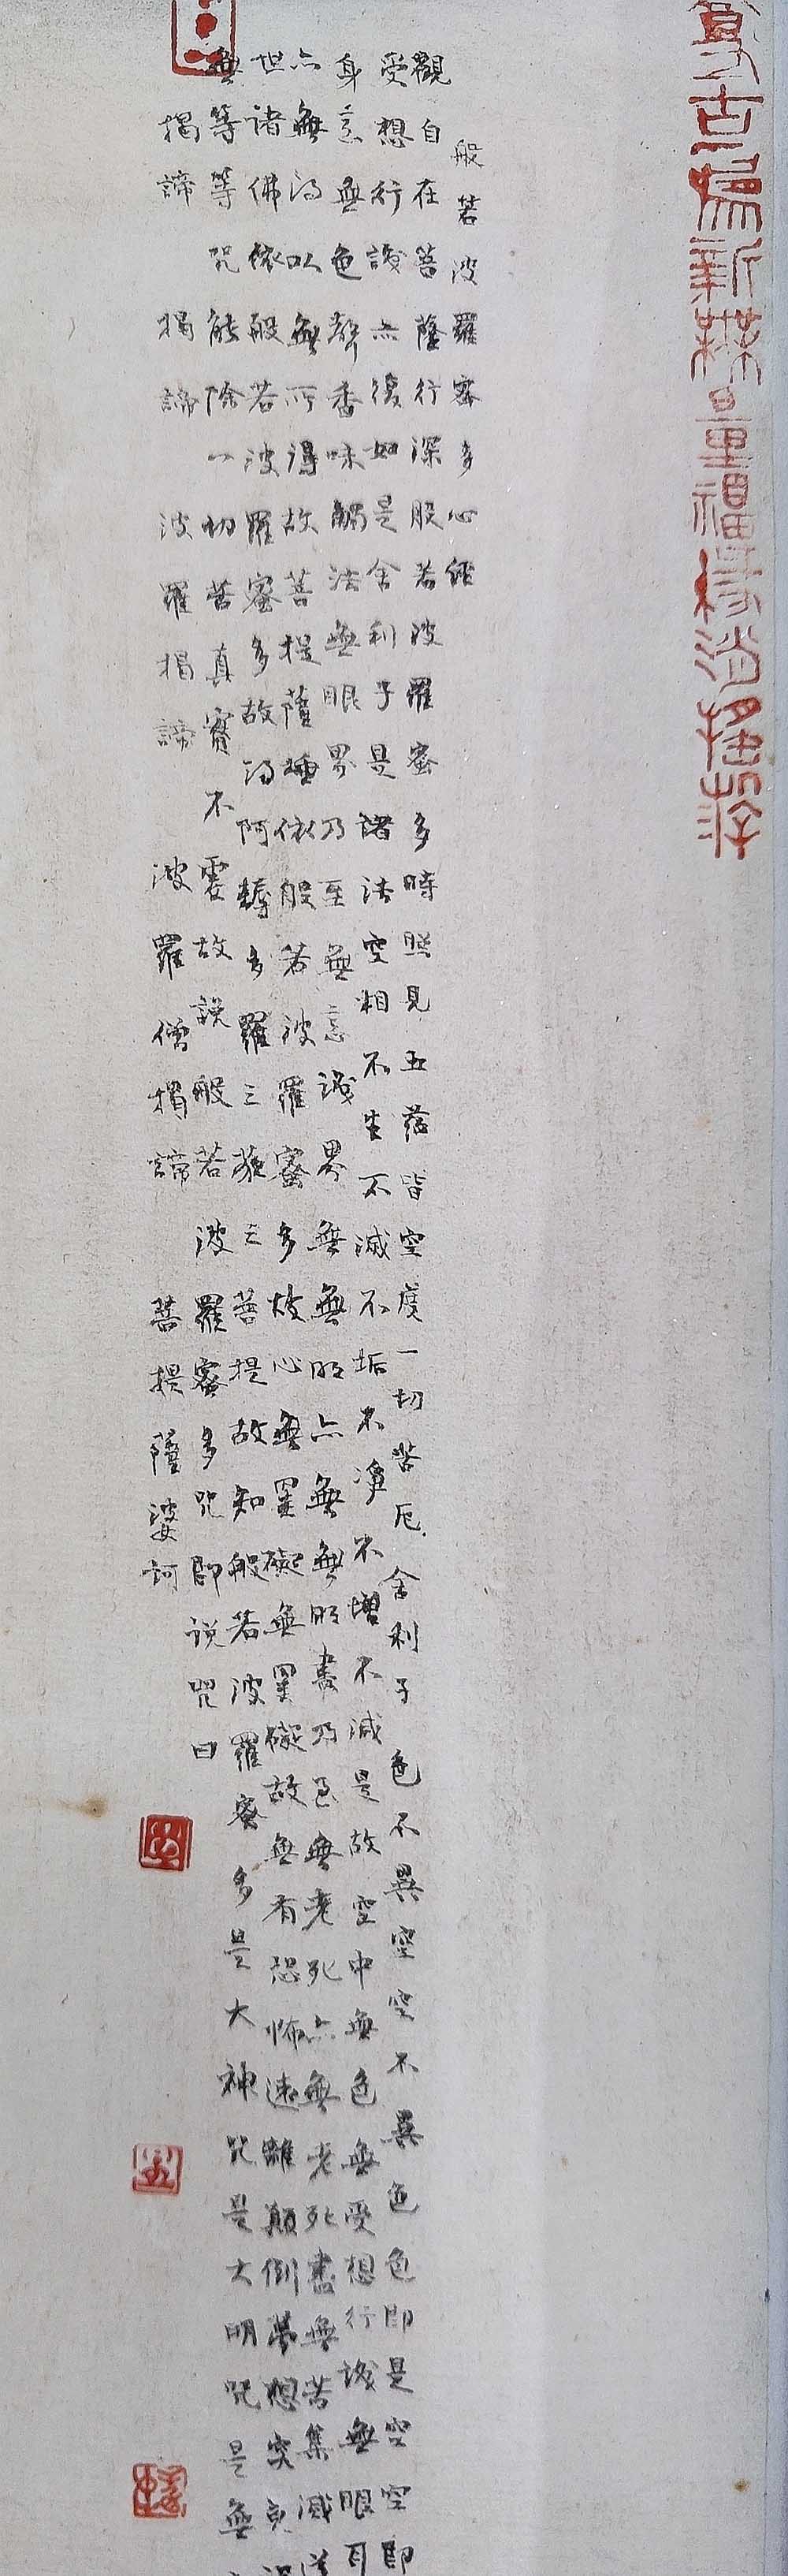 古為新無量福逍遙游
般若波羅蜜多心經
觀自在菩薩行深般若波羅蜜多時照見五蘊皆空度一切苦厄舍利子色不異空空不異色色即是空空即
受想行識亦復如是舍利子是諸法空相不生不滅不垢不淨不增不減是故空中無色無受想行識無眼耳
身意無色聲香味觸法無眼界乃至無意識界無無明亦無無明盡乃至無老死亦無老死盡無苦集滅道
亦無得以無所得故菩提薩埵依般若波羅蜜多故心無罣礙無罣礙故無有恐怖遠離顛倒夢想究竟涅
世諸佛依般若波羅蜜多故得阿耨多羅三藐三菩提故知般若波羅蜜多是大神咒是大明咒是無
無等等咒能除一切苦真實不虛故說般若波羅蜜多咒即說咒曰
揭諦揭諦波羅揭諦波羅僧揭諦菩提薩婆訶